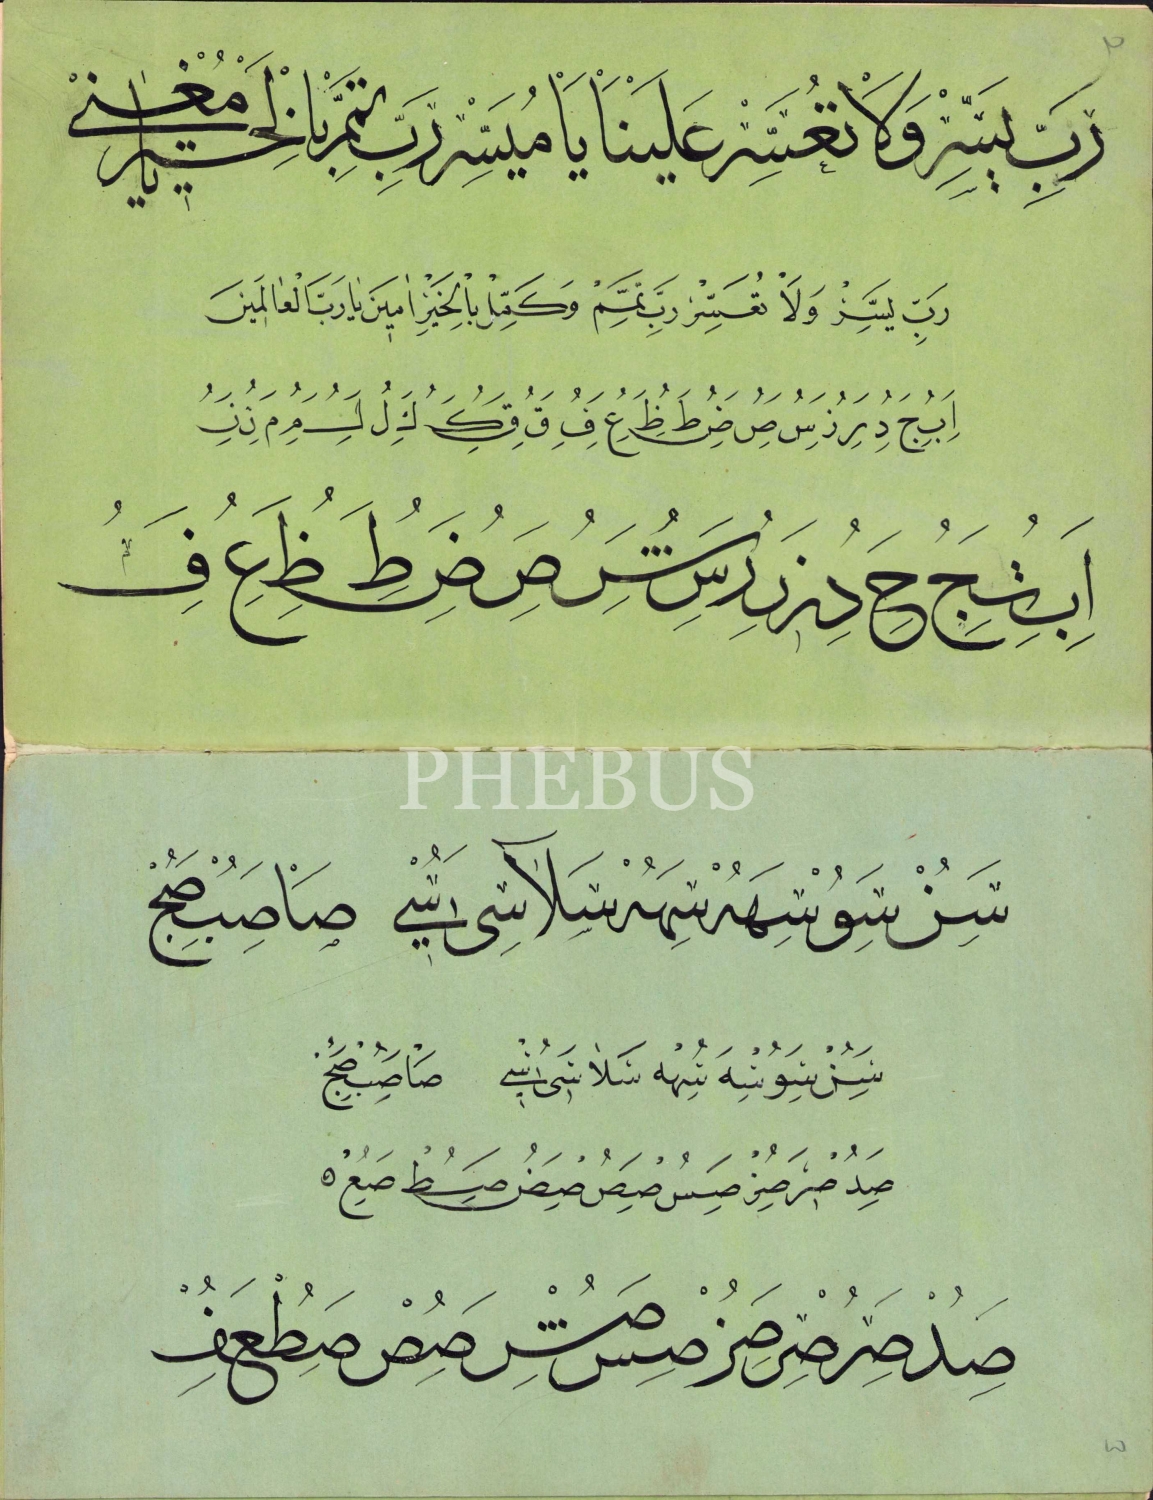 رَبِّ يَسِّرْ وَلَا تُعَسِّرْ عَلَيْنَا يَا مُيَسِّرْ رَبِّ تَمِّمْ بِالْخَيْرِ يَا مُغْنِي
رَبِّ يَسِّرْ وَلَا تُعَسِّرْ رَبِّ تَمِّمْ وَكَمِّلْ بِالْخَيْرِ اٰمِينَ يَا رَبَّ الْعَالَمِينَ
ا ب ج د ر ز س ص ض ط ظ ع ف ق ك ل م ن
ا ب ث ج ح د ر ز س ش ص ض ط ظ ع ف
PHEBUS
سن سو سه سهه سلا سى سي صا صب صج
سن سو سه سهه سلا سى سي صا صب صج
صد صر صز صس صص صض صط صع ٥
صد صر صر صز صس صش صص صط صع صف